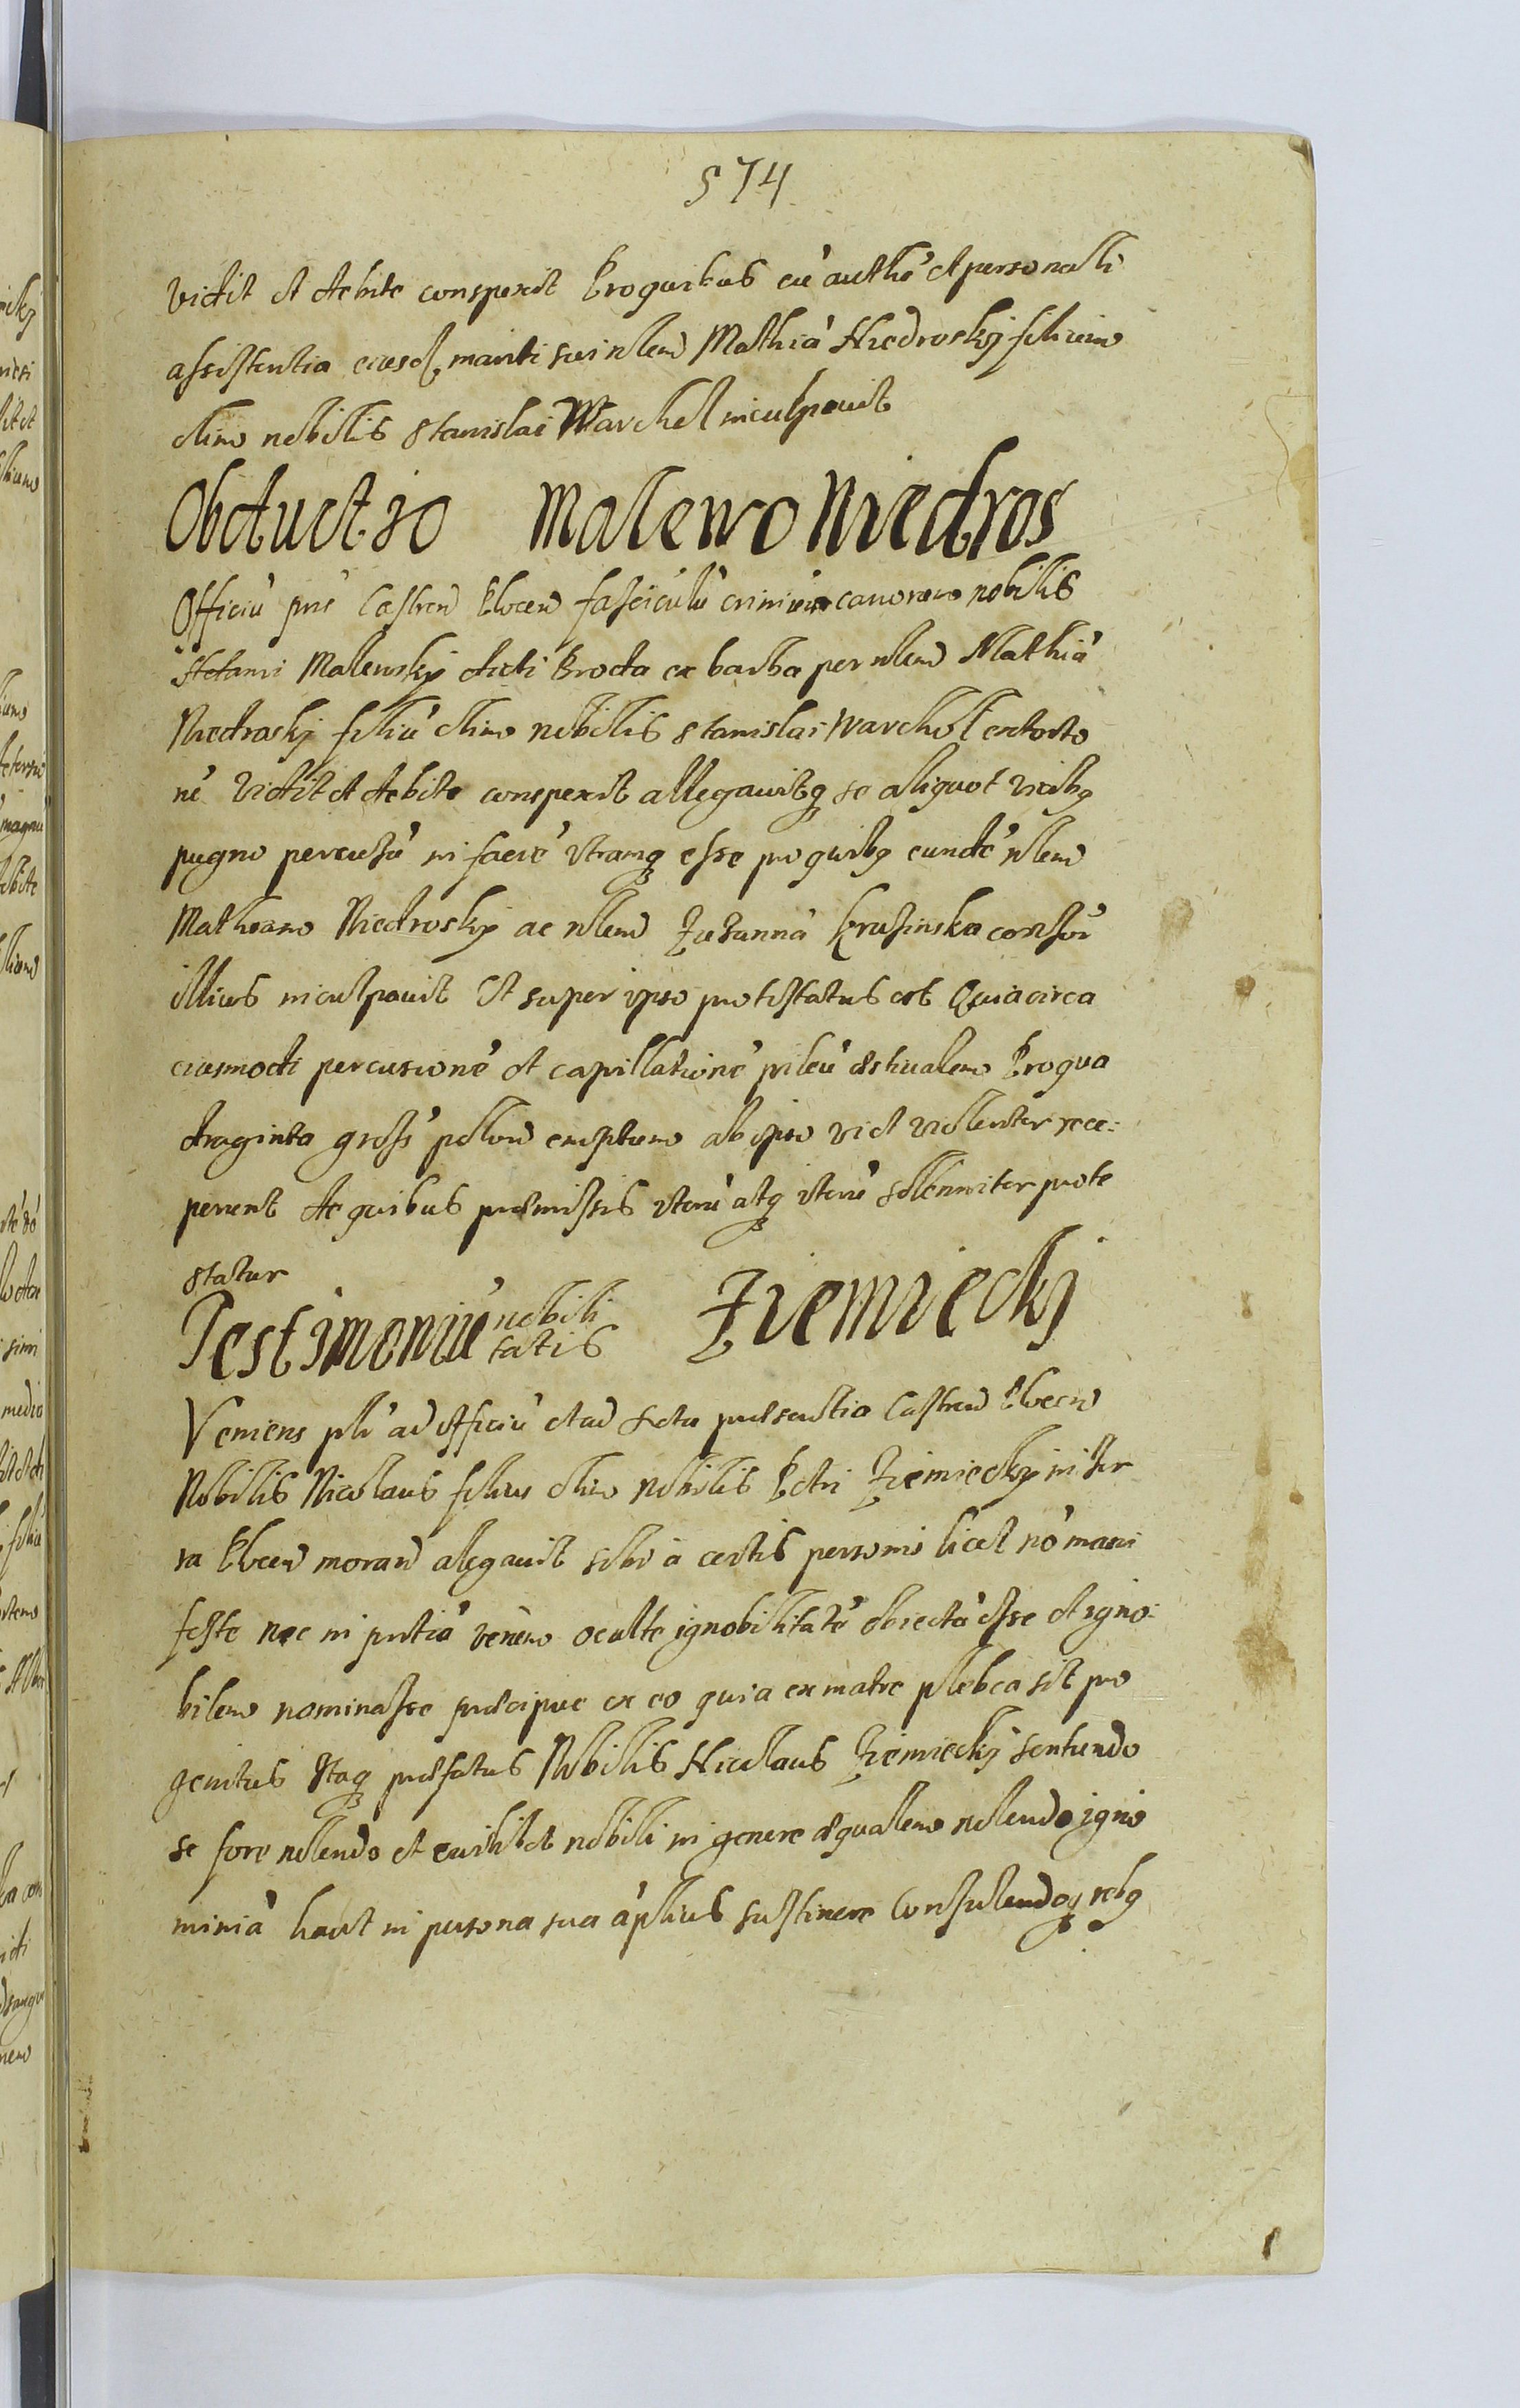 574
vidit et debite conspexit Pro quibus cũ authẽ et personali
assistentia eiusd mariti sui nlem Mathiã Niedrosky filium
olim nobilis Stanislai Warchol inculpavit
Obductio Malewo Niedros
Officiũ pns Castren Plocen fasciculũ crinium canorum nobilis
Adami Malewsky dicti Broda ex barba per nlem Mathiã
Niedrosky filiũ olim nobilis Stanislai Warchol extorto
nẽ vidit et debite conspexit allegavitq se aliquot vicibq
pugno percussũ in faciẽ utramq esse pro quibq eundẽ nlem
Mathiam Niedrosky ac nlem Zuzannã Krasinska consor
illius inculpavit Et super ipso protestatus est Quia circa
eiusmodi percusionẽ et capillationẽ pileũ estivalem Pro qua
draginta gross polon emptum ab ipso vi et violenter rece:
perunt de quibus præmissis iterũ atq iterũ solenniter prote
statur
Testimoniũ nobili
tatis Ziemiecki
Veniens pli ad officiũ et ad acta præsentia Castren Plocen
Nobilis Nicolaus filius olim nobilis Petri Ziemiecky in ter
ra Plocen moran alegavit sibi a certis personis licet nõ mani
feste nec in pntia verum oculte ignobilitatẽ obiectã esse et igno:
bilem nominasse præcipue ex eo quia ex matre plebea sit pro
genitus Itaq præfatus Nobilis Nicolaus Ziemiecky sentiendo
se fore nlem et cuilibet nobili in genere æqualem nolendo igno
miniã haut in persona sua ãplius sustinere Consulendoq rebq